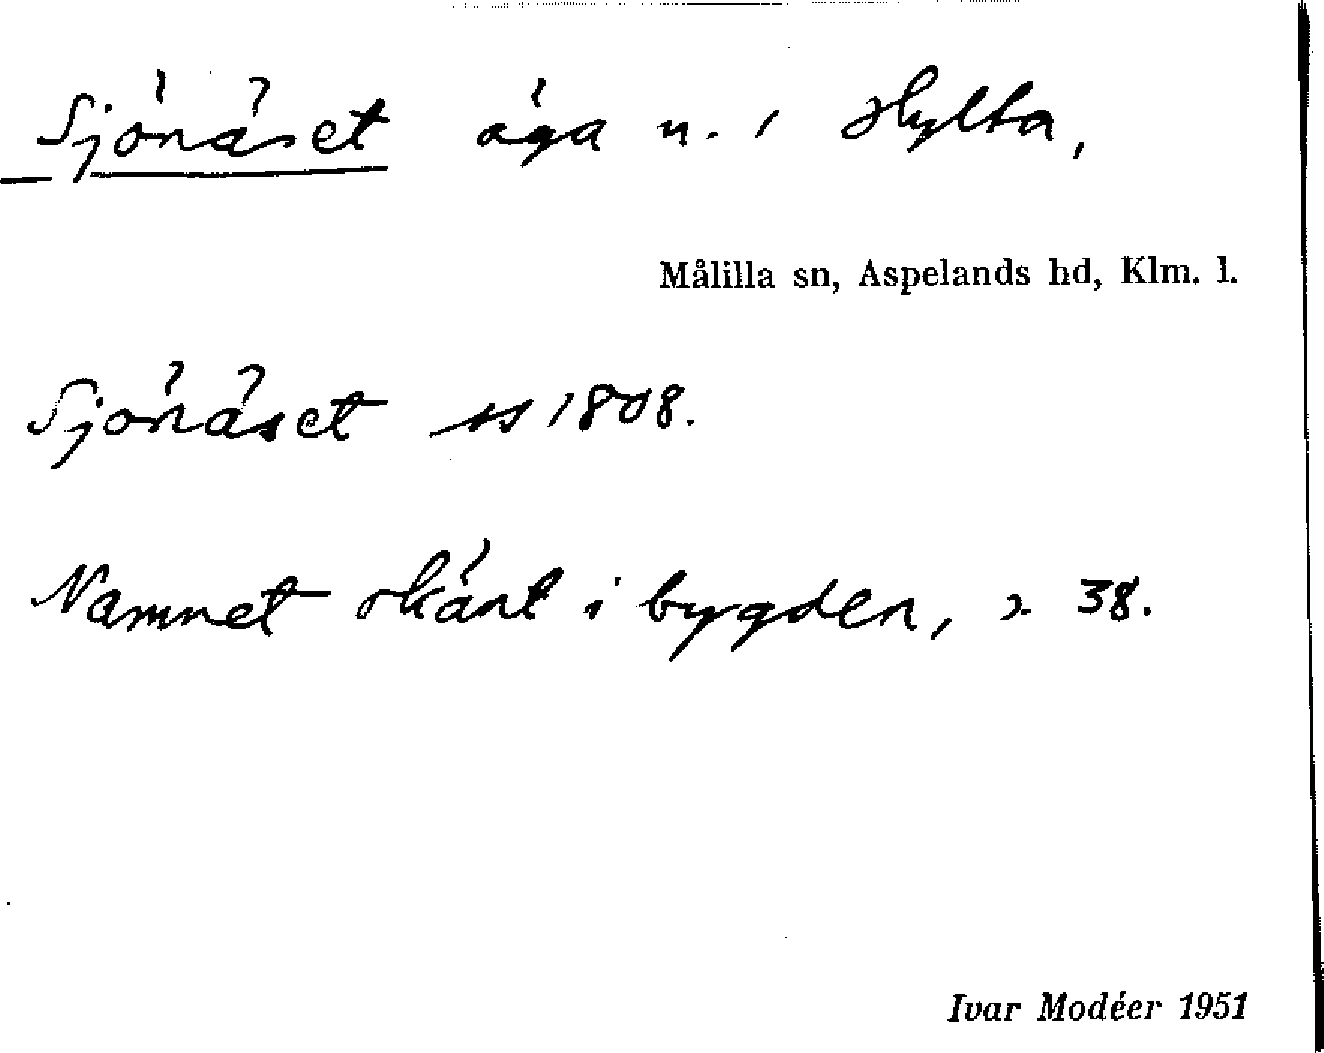 Sjönäset äga n. i Hylta,
Målilla sn, Aspelands hd, Klm. l.
Sjönäset ss 1808.
Namnet okänt i bygden, 38.
Ivar Modéer 1951